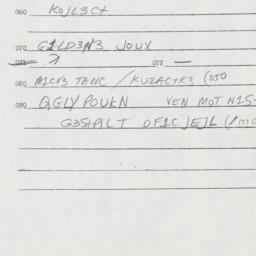 060 KOJL3C+
070 G1LD3N3 JOUX
072 —
080 M1CV3 TANC / KUZAC+K3 (050
090 QGLY POUKN VEN MOT N1S-
G3S+PILT OF1C JEJL (/MC